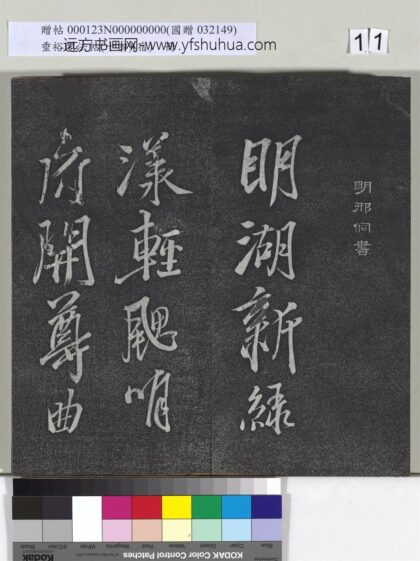 贈帖 000123N000000000(國贈 032149)
远方书画网 www.yfshuhua.com
11
明邢侗書
明湖新綠
漾輕颸哨
府開尊曲
Blue
Cyan
Green
Yellow
Red
Magenta
White
3/Color
Black
KODAK Color Control Patches
Kodak